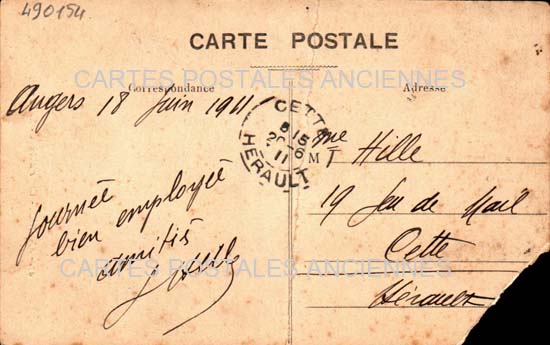 490154
CARTE POSTALE
CARTES POSTALES ANCIENNES
Correspondance
Adresse
Angers 18 Juin 1911
CETTE
8 15
20 6
11
HERAULT
Mme Hille
19 Jeu de Mail
Cette
Hérault
Journée
bien employée
amitiés
CARTES POSTALES ANCIENNES